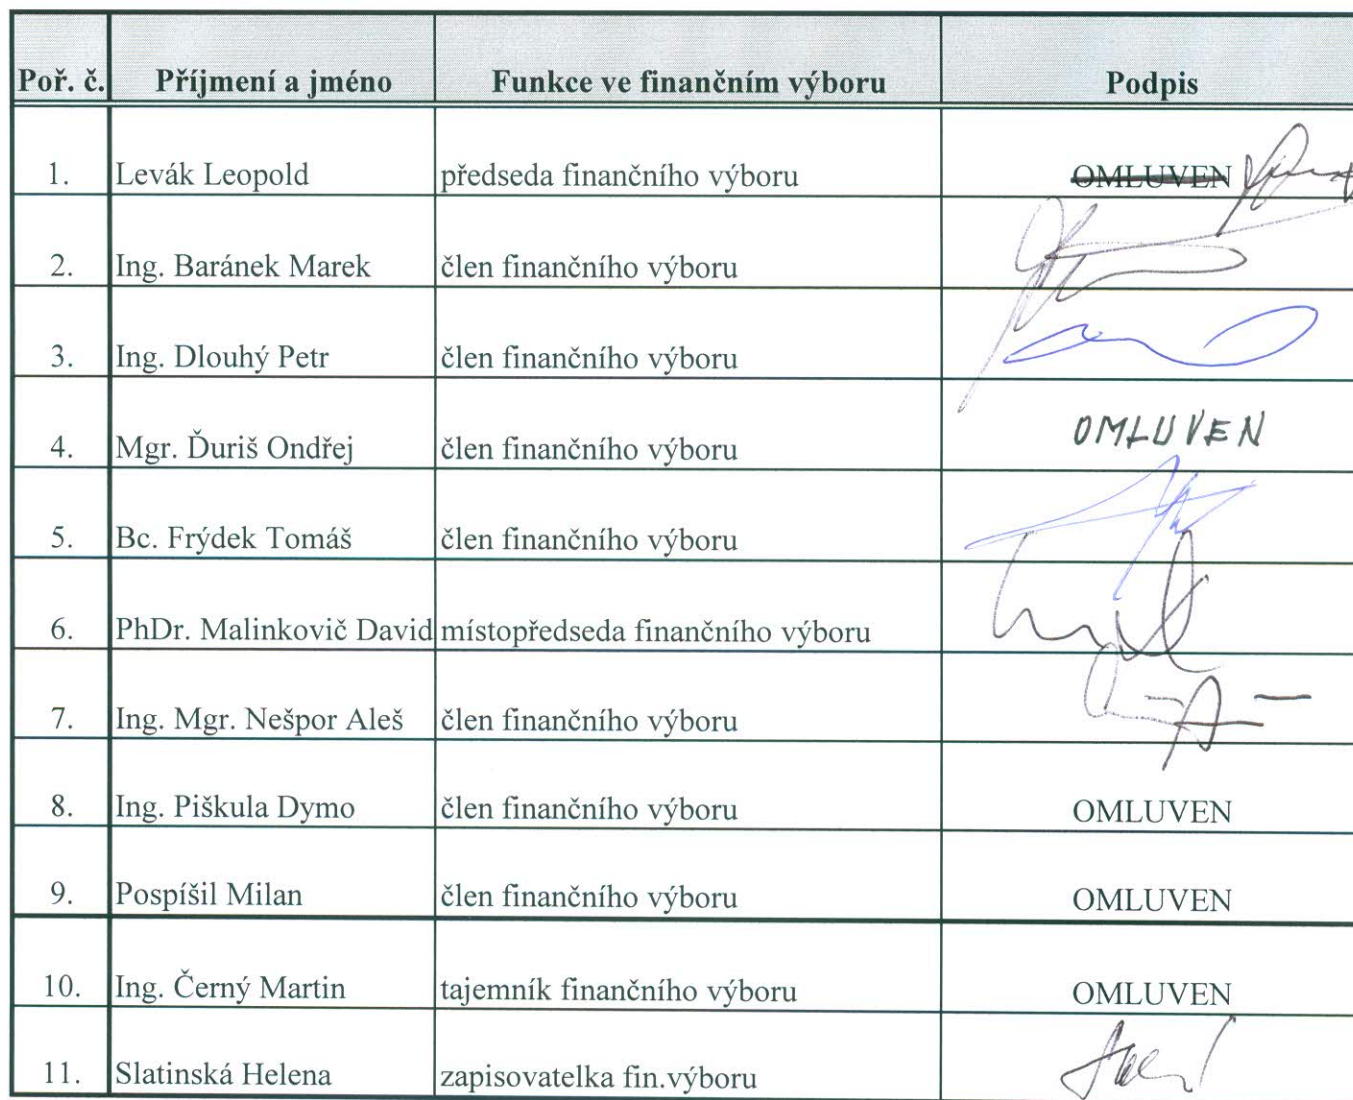 Poř. č. Příjmení a jméno Funkce ve finančním výboru Podpis
1. Levák Leopold předseda finančního výboru OMLUVEN
2. Ing. Baránek Marek člen finančního výboru
3. Ing. Dlouhý Petr člen finančního výboru
4. Mgr. Ďuriš Ondřej člen finančního výboru OMLUVEN
5. Bc. Frýdek Tomáš člen finančního výboru
6. PhDr. Malinkovič David místopředseda finančního výboru
7. Ing. Mgr. Nešpor Aleš člen finančního výboru
8. Ing. Piškula Dymo člen finančního výboru OMLUVEN
9. Pospíšil Milan člen finančního výboru OMLUVEN
10. Ing. Černý Martin tajemník finančního výboru OMLUVEN
11. Slatinská Helena zapisovatelka fin.výboru